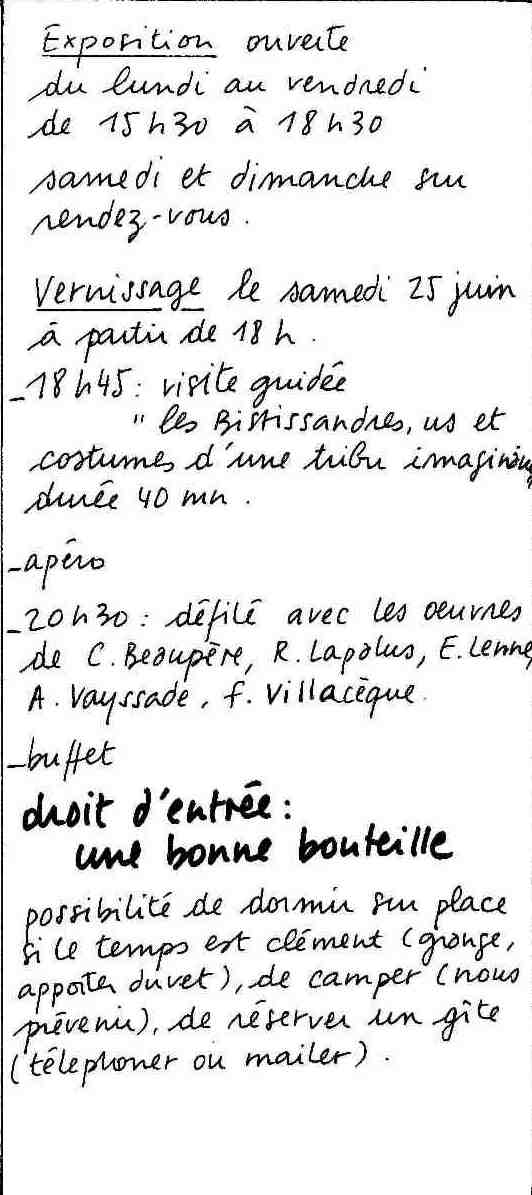 Exposition ouverte
du lundi au vendredi
de 15h30 à 18h30
samedi et dimanche sur
rendez-vous.
Vernissage le samedi 25 juin
à partir de 18 h.
- 18h45: visite guidée
" les Bistissandres, us et
costumes d'une tribu
durée 40 mn.
- apéro
- 20h30: défilé avec les oeuvres
de C. Beaupère, R. Lapalus, E. Lenne
A. Vayssade, F. Villacèque.
- buffet
droit d'entrée:
une bonne bouteille
possibilité de dormir sur place
si le temps est clément (grange,
apporter duvet), de camper (nous
prévenir), de réserver un gîte
(télephoner ou mailer).